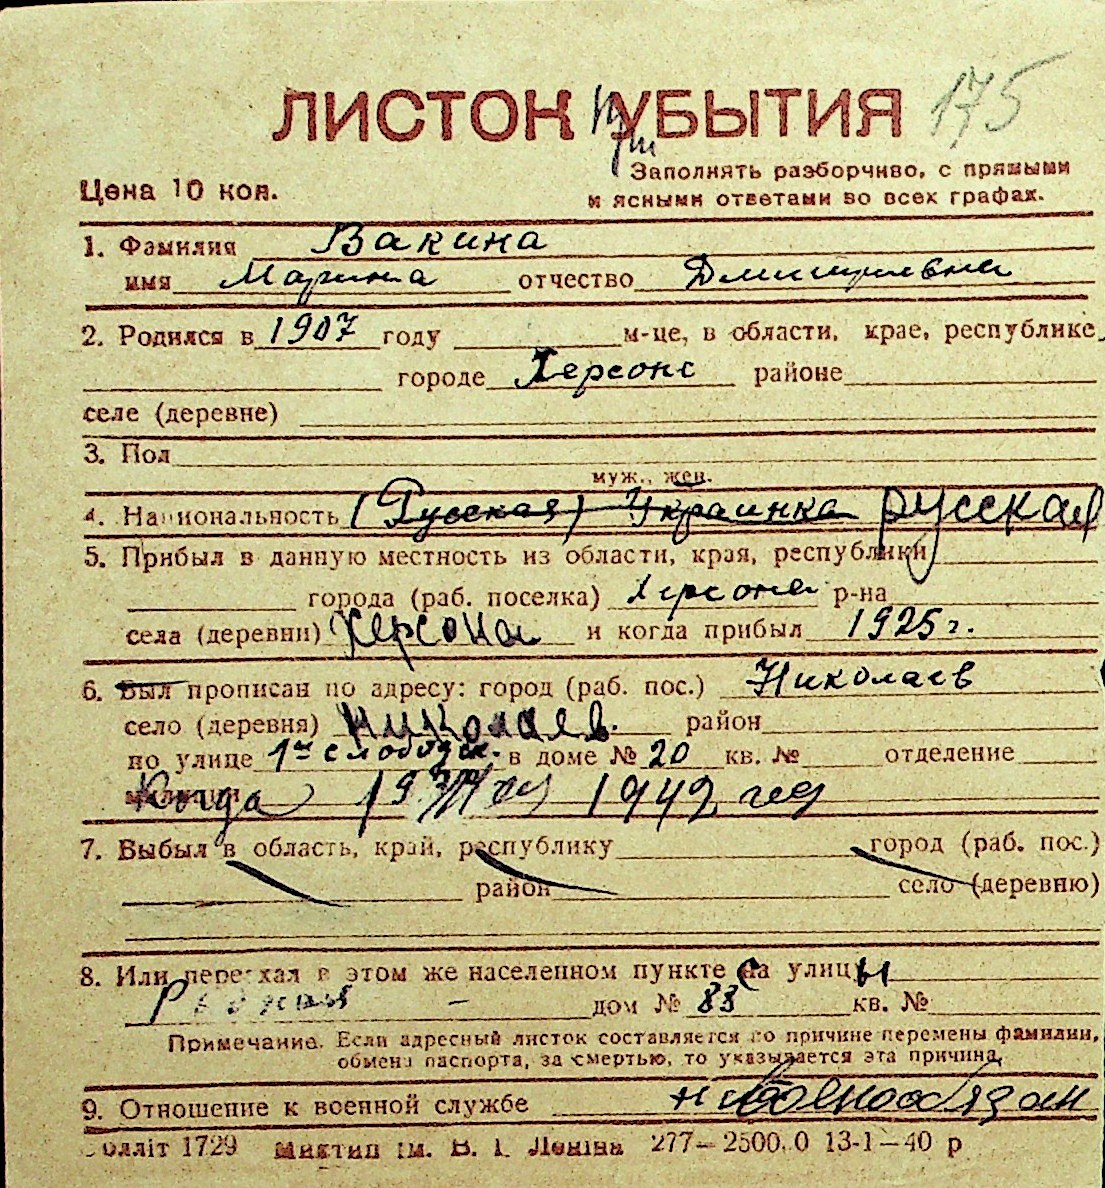 ЛИСТОК УБЫТИЯ 175
Заполнять разборчиво, с прямыми
Цена 10 коп. и ясными ответами во всех графах.
1. Фамилия Вакина
имя Марина отчество Дмитриевна
2. Родился в 1907 году м-це, в области, крае, республике,
городе Херсоне районе
селе (деревне)
3. Пол
муж., жен.
4. Национальность (Русская) Украинка русская
5. Прибыл в данную местность из области, края, республики
города (раб. поселка) Херсона р-на
села (деревни) Херсона и когда прибыл 1925 г.
6. Был прописан по адресу: город (раб. пос.) Николаев
село (деревня) Николаев. район
по улице 1ая слободск. в доме № 20 кв. № отделение
Когда 1942 год
7. Выбыл в область, край, республику город (раб. пос.)
район село (деревню)
8. Или переехал в этом же населенном пункте на улицы
дом № 83 кв. №
Примечание. Если адресный листок составляется по причине перемены фамилии,
обмена паспорта, за смертью, то указывается эта причина.
9. Отношение к военной службе невоеннообязан
1729 ім. В. І. Леніна 277—2500.0 13-1—40 р